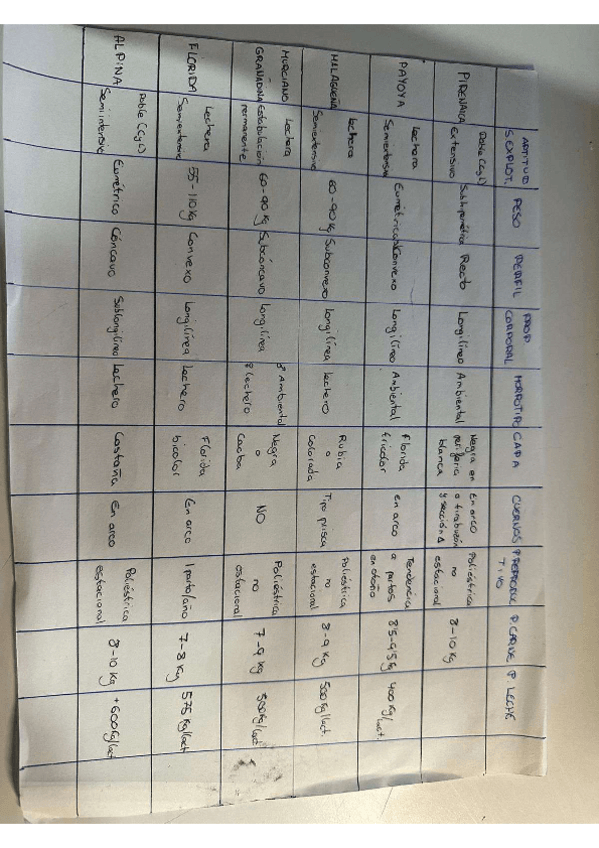 APTITUD
S. EXPLOT.
PESO
PERFIL
PROP
CORPORAL
MORFOTIPO
CAPA
CUERNOS
P. REPRODUC
TIVO
P. CARNE
P. LECHE
PIRENAICA
Doble (CyL)
Extensivo
Subhipermétrica
Recto
Longilíneo
Ambiental
Negra en
periferia
blanca
En arco
o tirabuzón
y sección Δ
Poliéstrica
no
estacional
8-10 kg
PAYOYA
Lechera
Semiextensivo
Eumétrica
Subconvexo
Longilíneo
Ambiental
Florida
tricolor
en arco
Tendencia
a partos
en otoño
8'5-9'5 kg
400 kg/lact.
MALAGUEÑA
Lechera
Semiextensivo
60-90 kg
Subconvexo
Longilínea
Lechero
Rubia
o
colorada
Tipo prisca
Poliéstrica
no
estacional
8-9 kg
500 kg/lact.
MURCIANO
GRANADINA
Lechera
Estabulación
permanente
60-90 kg
Subcóncavo
Longilínea
♂ Ambiental
♀ Lechero
Negra
o
Caoba
NO
Poliéstrica
no
estacional
7-9 kg
530 kg/lact.
FLORIDA
Lechera
Semiextensivo
55-110 kg
Convexo
Longilínea
Lechero
Florida
bicolor
En arco
1 parto/año
7-8 kg
575 kg/lact.
ALPINA
Doble (CyL)
Semiintensivo
Eumétrico
Cóncavo
Sublongilíneo
Lechero
Castaña
En arco
Poliéstrica
estacional
8-10 kg
+600 kg/lact